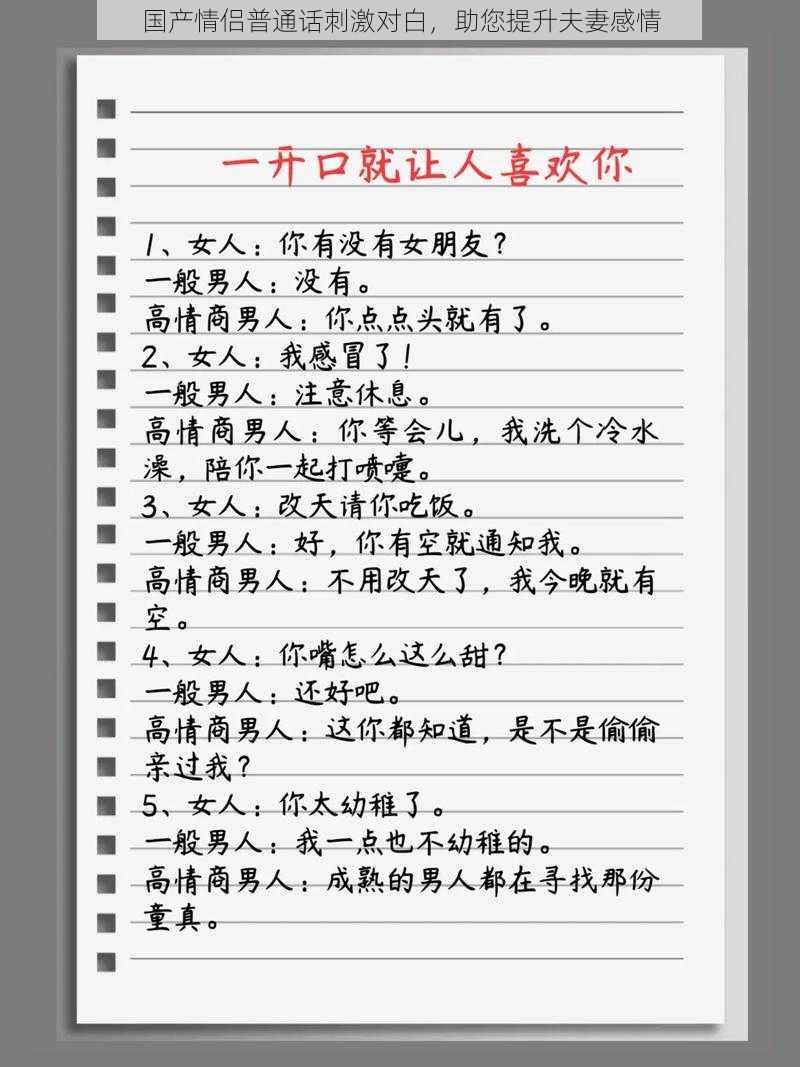 国产情侣普通话刺激对白，助您提升夫妻感情
一开口就让人喜欢你
1、女人：你有没有女朋友？
一般男人：没有。
高情商男人：你点点头就有了。
2、女人：我感冒了！
一般男人：注意休息。
高情商男人：你等会儿，我洗个冷水
澡，陪你一起打喷嚏。
3、女人：改天请你吃饭。
一般男人：好，你有空就通知我。
高情商男人：不用改天了，我今晚就有
空。
4、女人：你嘴怎么这么甜？
一般男人：还好吧。
高情商男人：这你都知道，是不是偷偷
亲过我？
5、女人：你太幼稚了。
一般男人：我一点也不幼稚的。
高情商男人：成熟的男人都在寻找那份
童真。